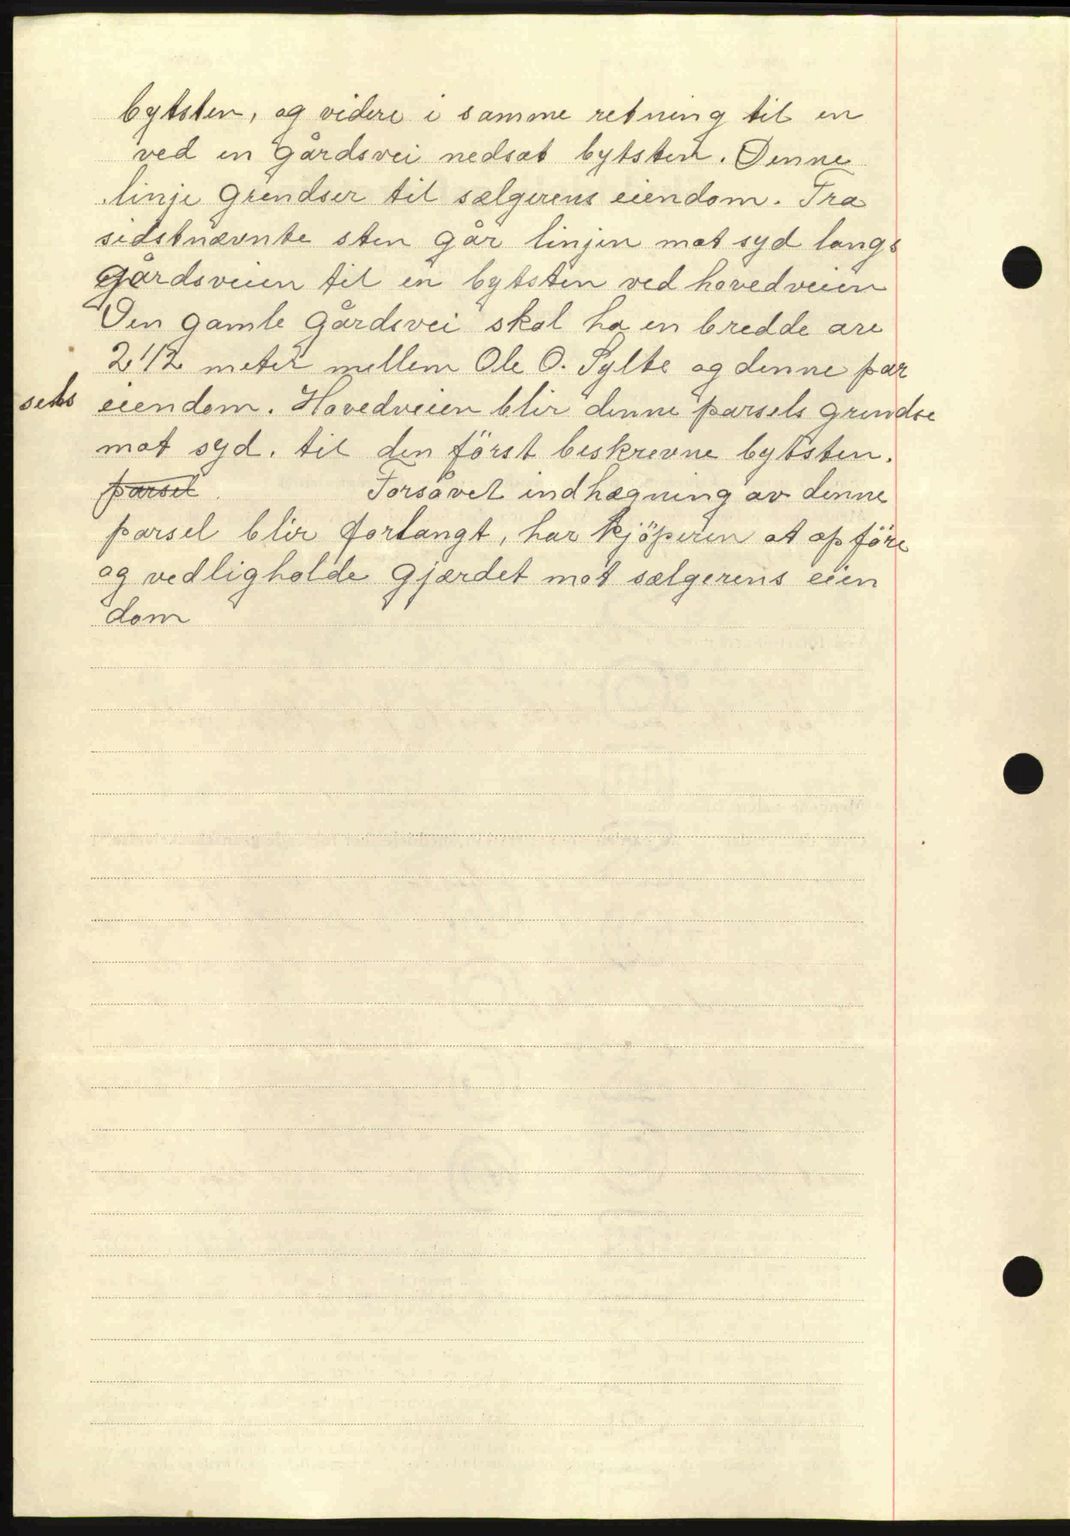 bytsten, og videre i samme retning til en
ved en gårdsvei nedsat bytsten. Denne
linje grendser til sælgerens eiendom. Fra
sidstnævnte sten går linjen mot syd langs
gårdsveien til en bytsten ved hovedveien
Den gamle gårdsvei skal ha en bredde are
2 1/2 meter mellem Ole O. Sylte og denne par
sels eiendom. Hovedveien blir denne parsels grendse
mot syd. til den först beskrevne bytsten.
parsel. Forsåvet indhægning av denne
parsel blir forlangt, har kjöperen at opföre
og vedligholde gjærdet mot sælgerens eien
dom